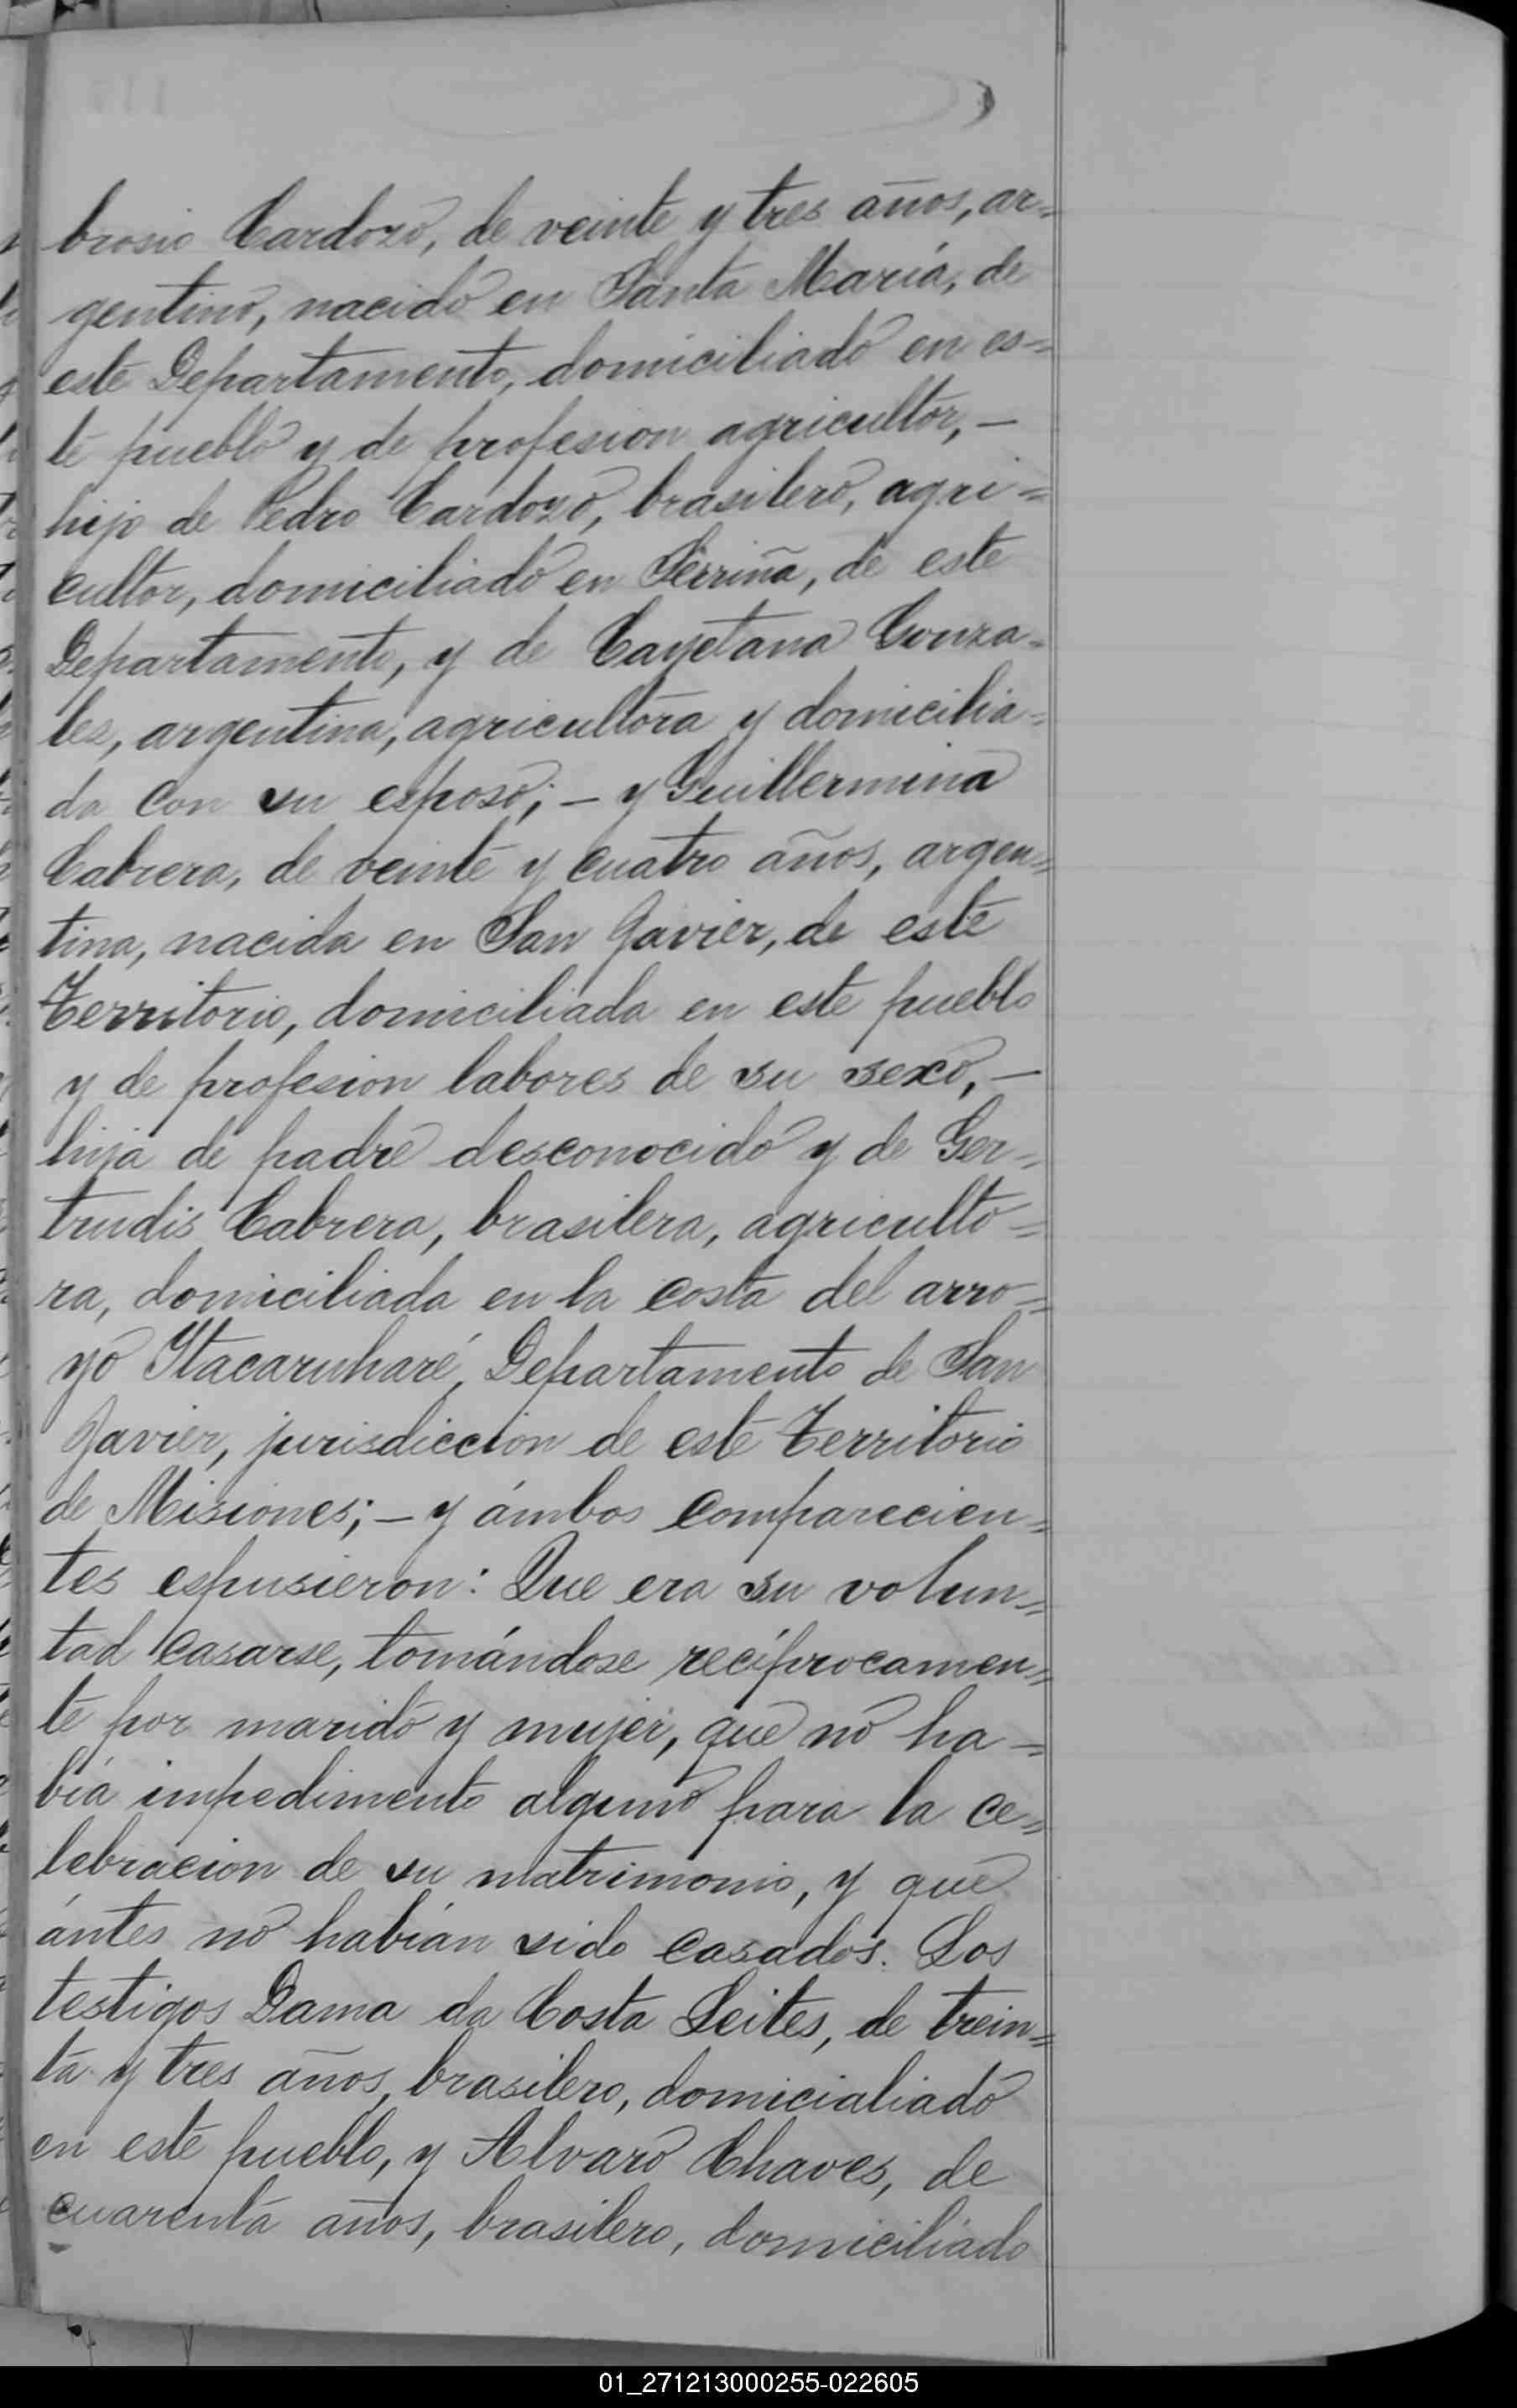 brosio Cardozo, de veinte y tres años, ar=
gentino, nacido en Santa María, de
este Departamento, domiciliado en es=
te pueblo y de profesion agricultor, —
hijo de Pedro Cardozo, brasilero, agri=
cultor, domiciliado en Serriña, de este
Departamento, y de Cayetana Gonza=
les, argentina, agricultora y domicilia=
da con su esposo; — y Guillermina
Cabrera, de veinte y cuatro años, argen=
tina, nacida en San Javier, de este
Territorio, domiciliada en este pueblo
y de profesion labores de su sexo, —
hija de padre desconocido y de Ger=
trudis Cabrera, brasilera, agriculto=
ra, domiciliada en la costa del arro=
yo Itacaruharé, Departamento de San
Javier, jurisdiccion de este Territorio
de Misiones; — y ámbos comparecien=
tes espusieron: Que era su volun=
tad casarse, tomándose recíprocamen=
te por marido y mujer, que no ha=
bía impedimento alguno para la ce=
lebracion de su matrimonio, y que
ántes no habían sido casados. Los
testigos Dama da Costa Leites, de trein=
ta y tres años, brasilero, domicialiado
en este pueblo, y Alvaro Chaves, de
cuarenta años, brasilero, domiciliado
01_271213000255-022605